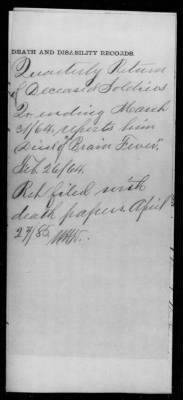 DEATH AND DISABILITY RECORDS.
Quarterly Return
of Deceased Soldiers
Qr. ending March
31/64, reports him
Died of "Brain Fever",
Feb. 26/64.
Ret filed with
death papers April
27/85.